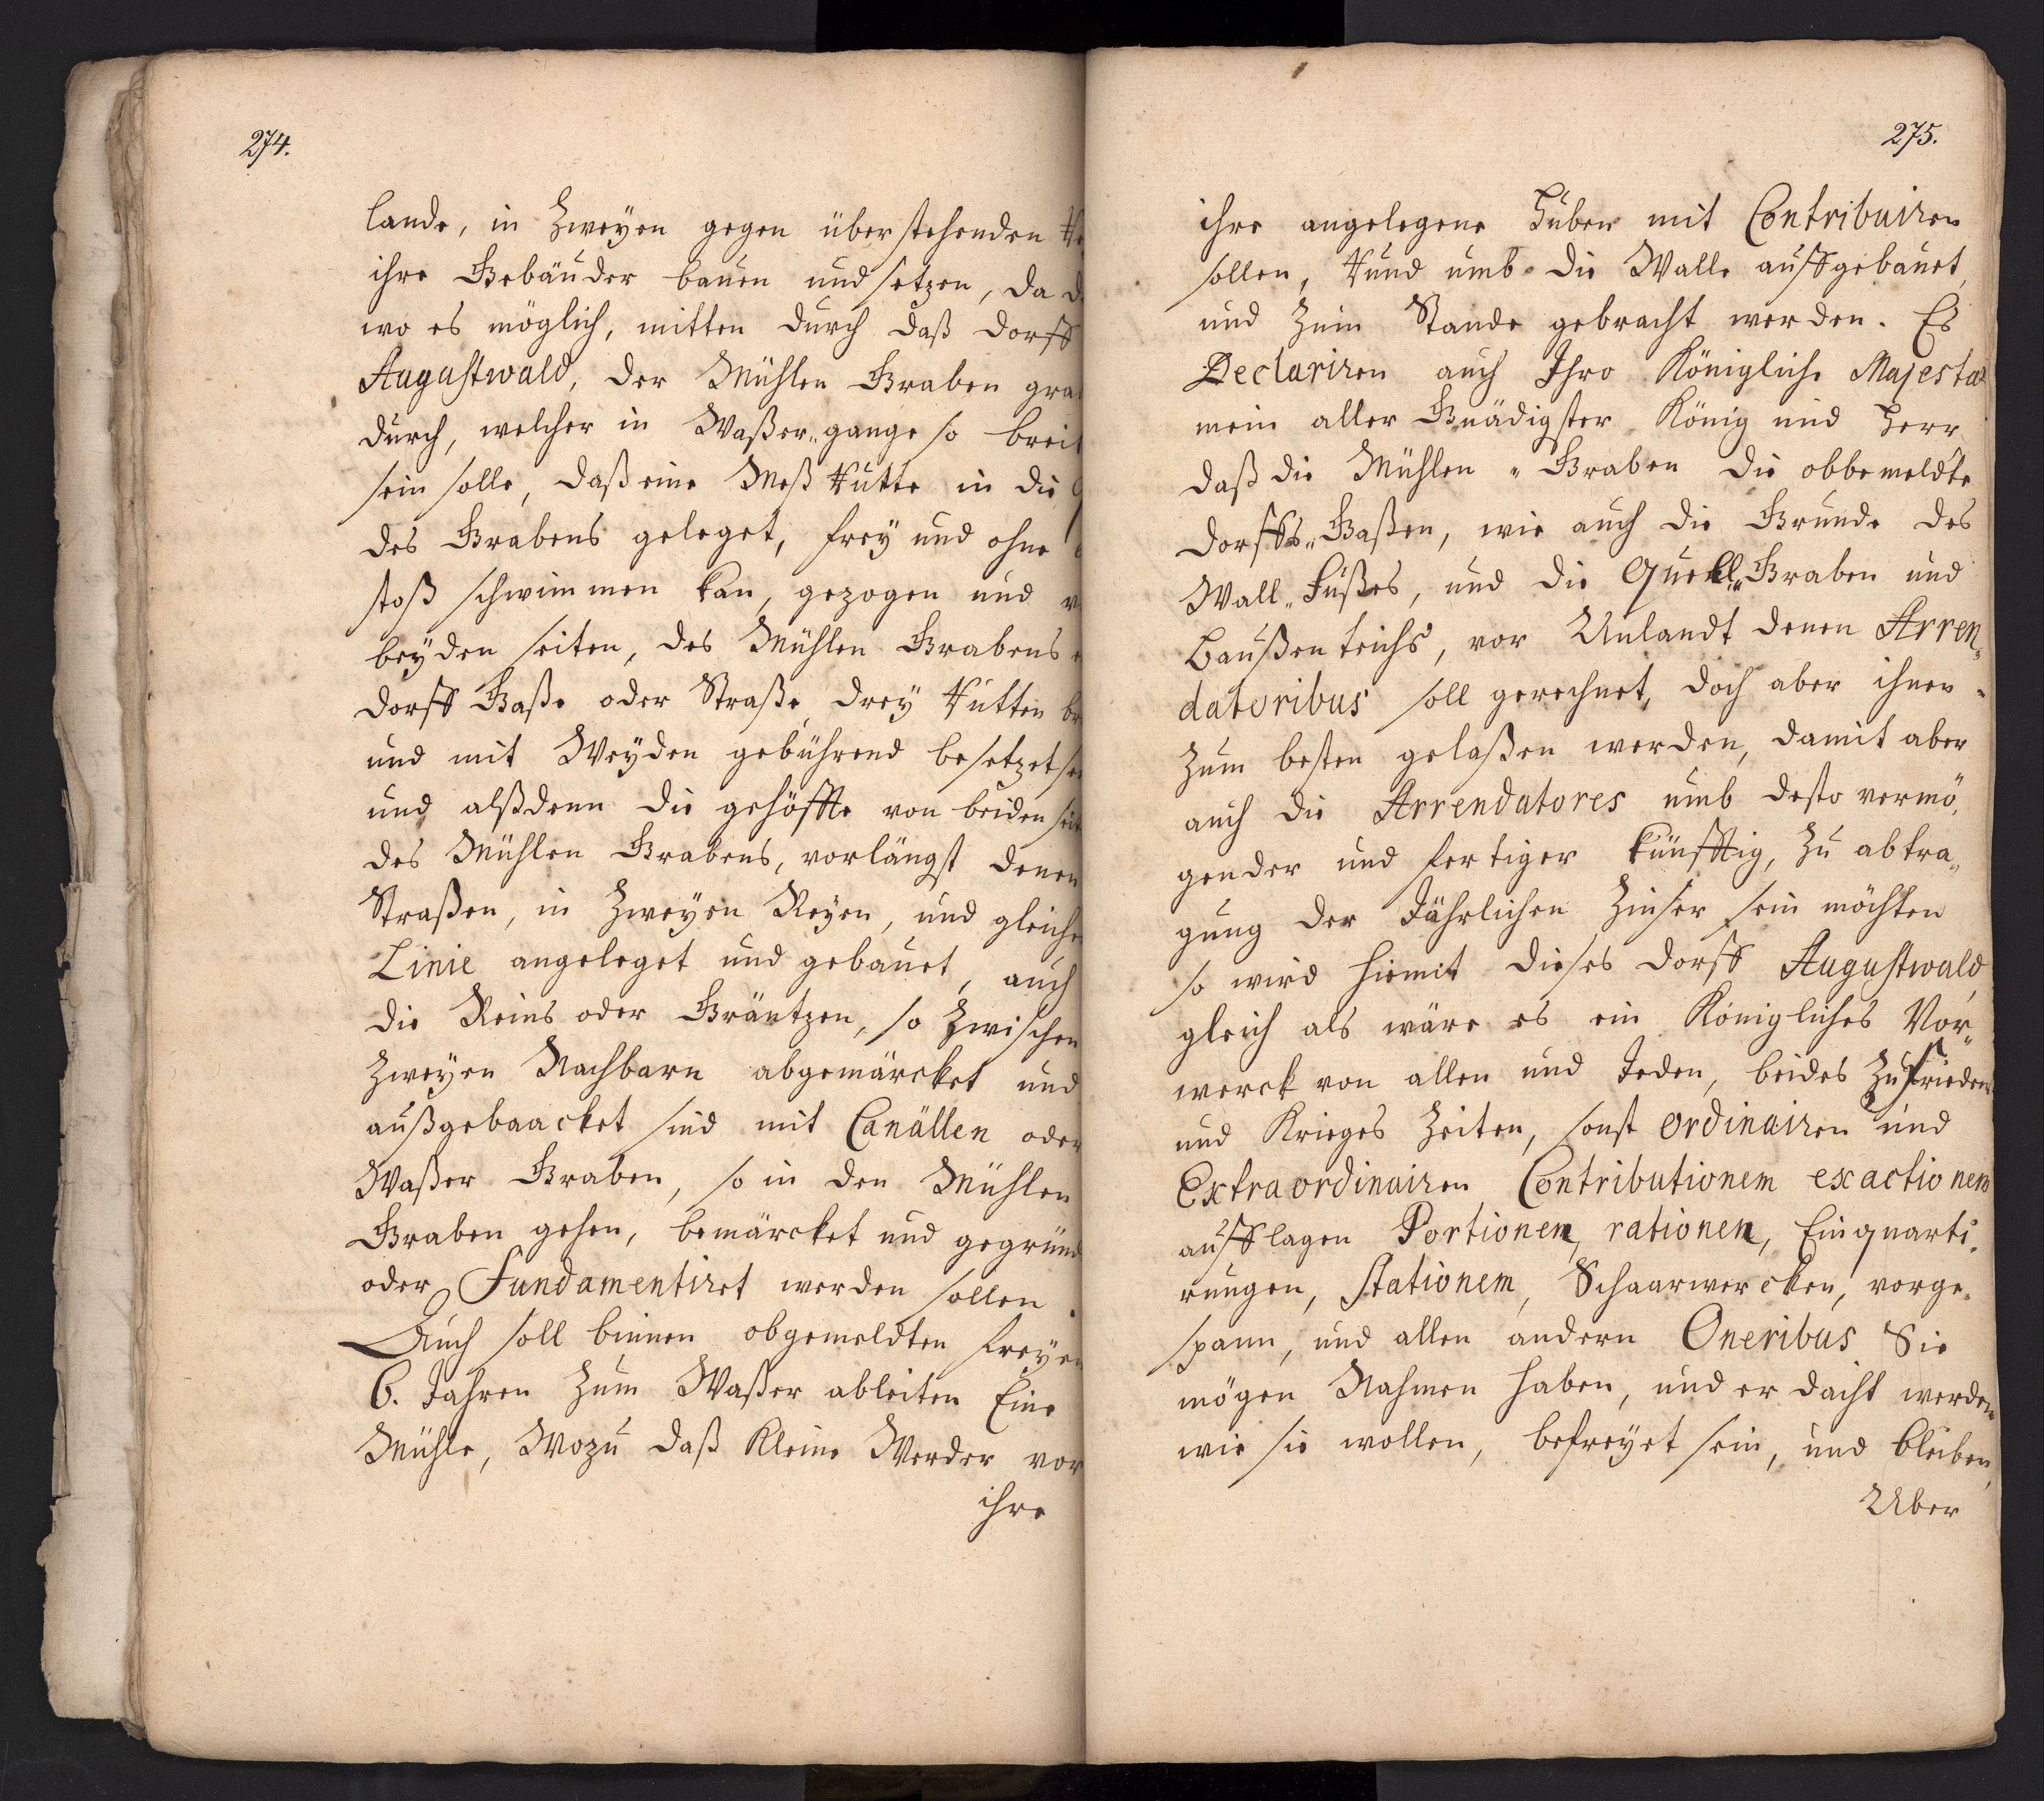 274.
lande, in Zweyen gegen über stehenden
ihre Gebäuder bauen und setzen, da
wo es möglich, mitten durch daß dorff
Augustwald, der Mühlen Graben
durch, welcher in Waßer„gange so breit
sein solle, daß eine Meß Rutte in die
des Grabens geleget, frey und ohne
stoß schwimmen kan, gezogen und
beyden seiten, des Mühlen Grabens
dorff Gaße oder Straße, drey Rutten
und mit Weyden gebührend besetzet
und alßdenn die gehöffte von beiden
des Mühlen Grabens, vorlängst denen
Straßen, in Zweyen Reyen, und gleicher
Linie angeleget und gebauet, auch
die Reins oder Gräntzen, so Zwischen
Zweyen Nachbarn abgemärcket und
außgebaacket sind mit Canällen oder
Waßer Graben, so in den Mühlen
Graben gehen, bemärcket und
oder Fundamentiret werden sollen.
Auch soll binnen obgemeldten freyen
6. Jahren Zum Waßer ableiten Eine
Mühle, Wozu daß Kleine Werder vor
ihre
275.
ihre angelegene Huben mit Contribuiren
sollen, Rund umb die Walle auffgebauet,
und Zum Stande gebracht werden. Es
Declariren auch Ihro Königliche Majestät
mein aller Gnädigster König und Herr
daß die Mühlen „ Graben die obbemeldte
dorffs„Gaßen, wie auch die Grunde des
Wall„Fußes, und die Quell„Graben und
Baußenteichs, vor Unlandt denen Arren„
datoribus soll gerechnet, doch aber ihnen
Zum besten gelaßen werden, damit aber
auch die Arrendatores umb desto vermö„
gender und fertiger künfftig, Zu abtra„
gung der Jährlichen Zinser sein möchten
so wird hiemit dieses dorff Augustwald
gleich als wäre es ein Königliches Vor„
werck von allen und Jeden, beides Zu friedens
und Krieges Zeiten, sonst ordinairen und
Extraordinairen Contributionem exactionem
aufflagen Portionem, rationem, Einquarti„
rungen, Stationem, Schaarwercken, vorge„
spann, und allen andern Oneribus Sie
mögen Nahmen haben, und er dacht werden
wie sie wollen, befreyet sein, und bleiben,
Uber